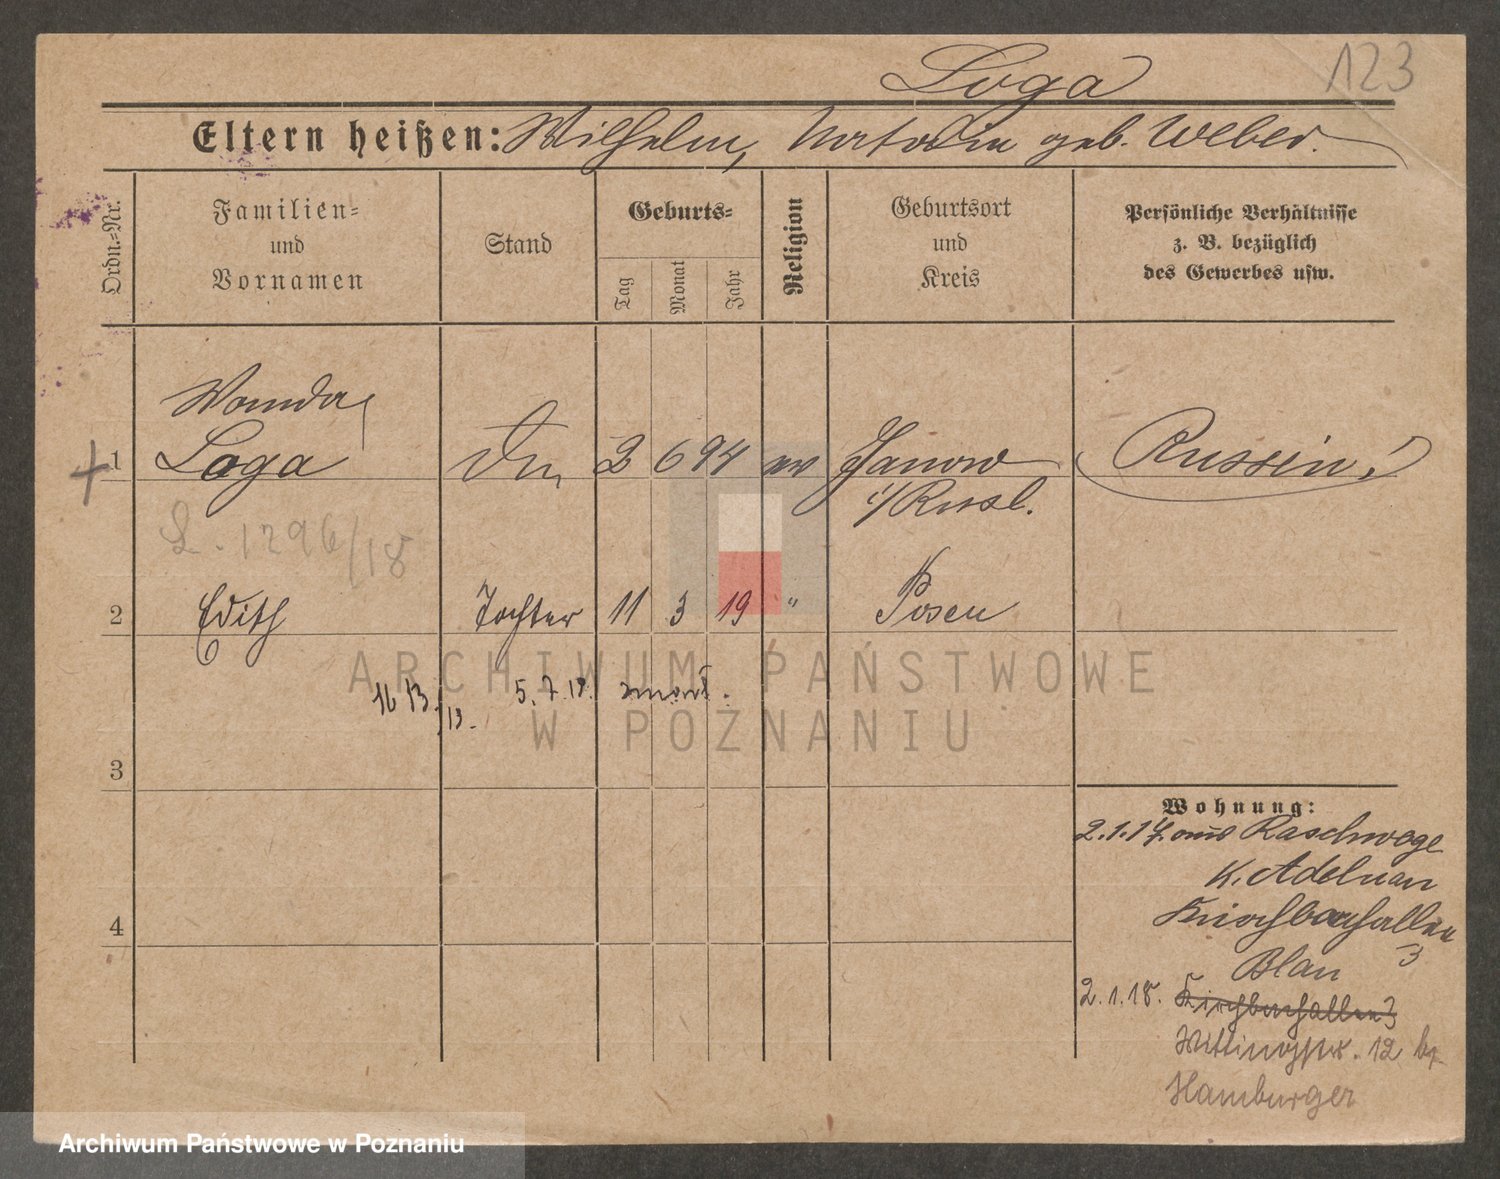 Loga
123
Eltern heißen: Wilhelm, geb. Weber.
Ordn.-Nr.
Familien- und Vornamen
Stand
Geburts-
Tag
Monat
Jahr
Religion
Geburtsort und Kreis
Persönliche Verhältnisse z. B. bezüglich des Gewerbes usw.
Wanda,
1 Loga 2 6 94 ev Janow Russin!
i/Russl.
L. 1296/18
2 Edith Tochter 11 3 19 " Posen
5.7.19.
3
Wohnung:
2.1.17. aus Raschwege
K. Adelnau
4
3
Blau
2.1.18.
12 b/
Hamburger
ARCHIWUM PAŃSTWOWE
W POZNANIU
Archiwum Państwowe w Poznaniu